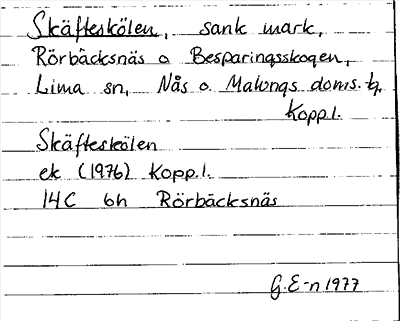 Skäfteskölen, sank mark,
Rörbäcksnäs o Besparingsskogen,
Lima sn, Nås o. Malungs doms.-h,
Kopp.l.
Skäfteskölen
ek (1976) Kopp.l.
14C 6h Rörbäcksnäs
G.E-n 1977